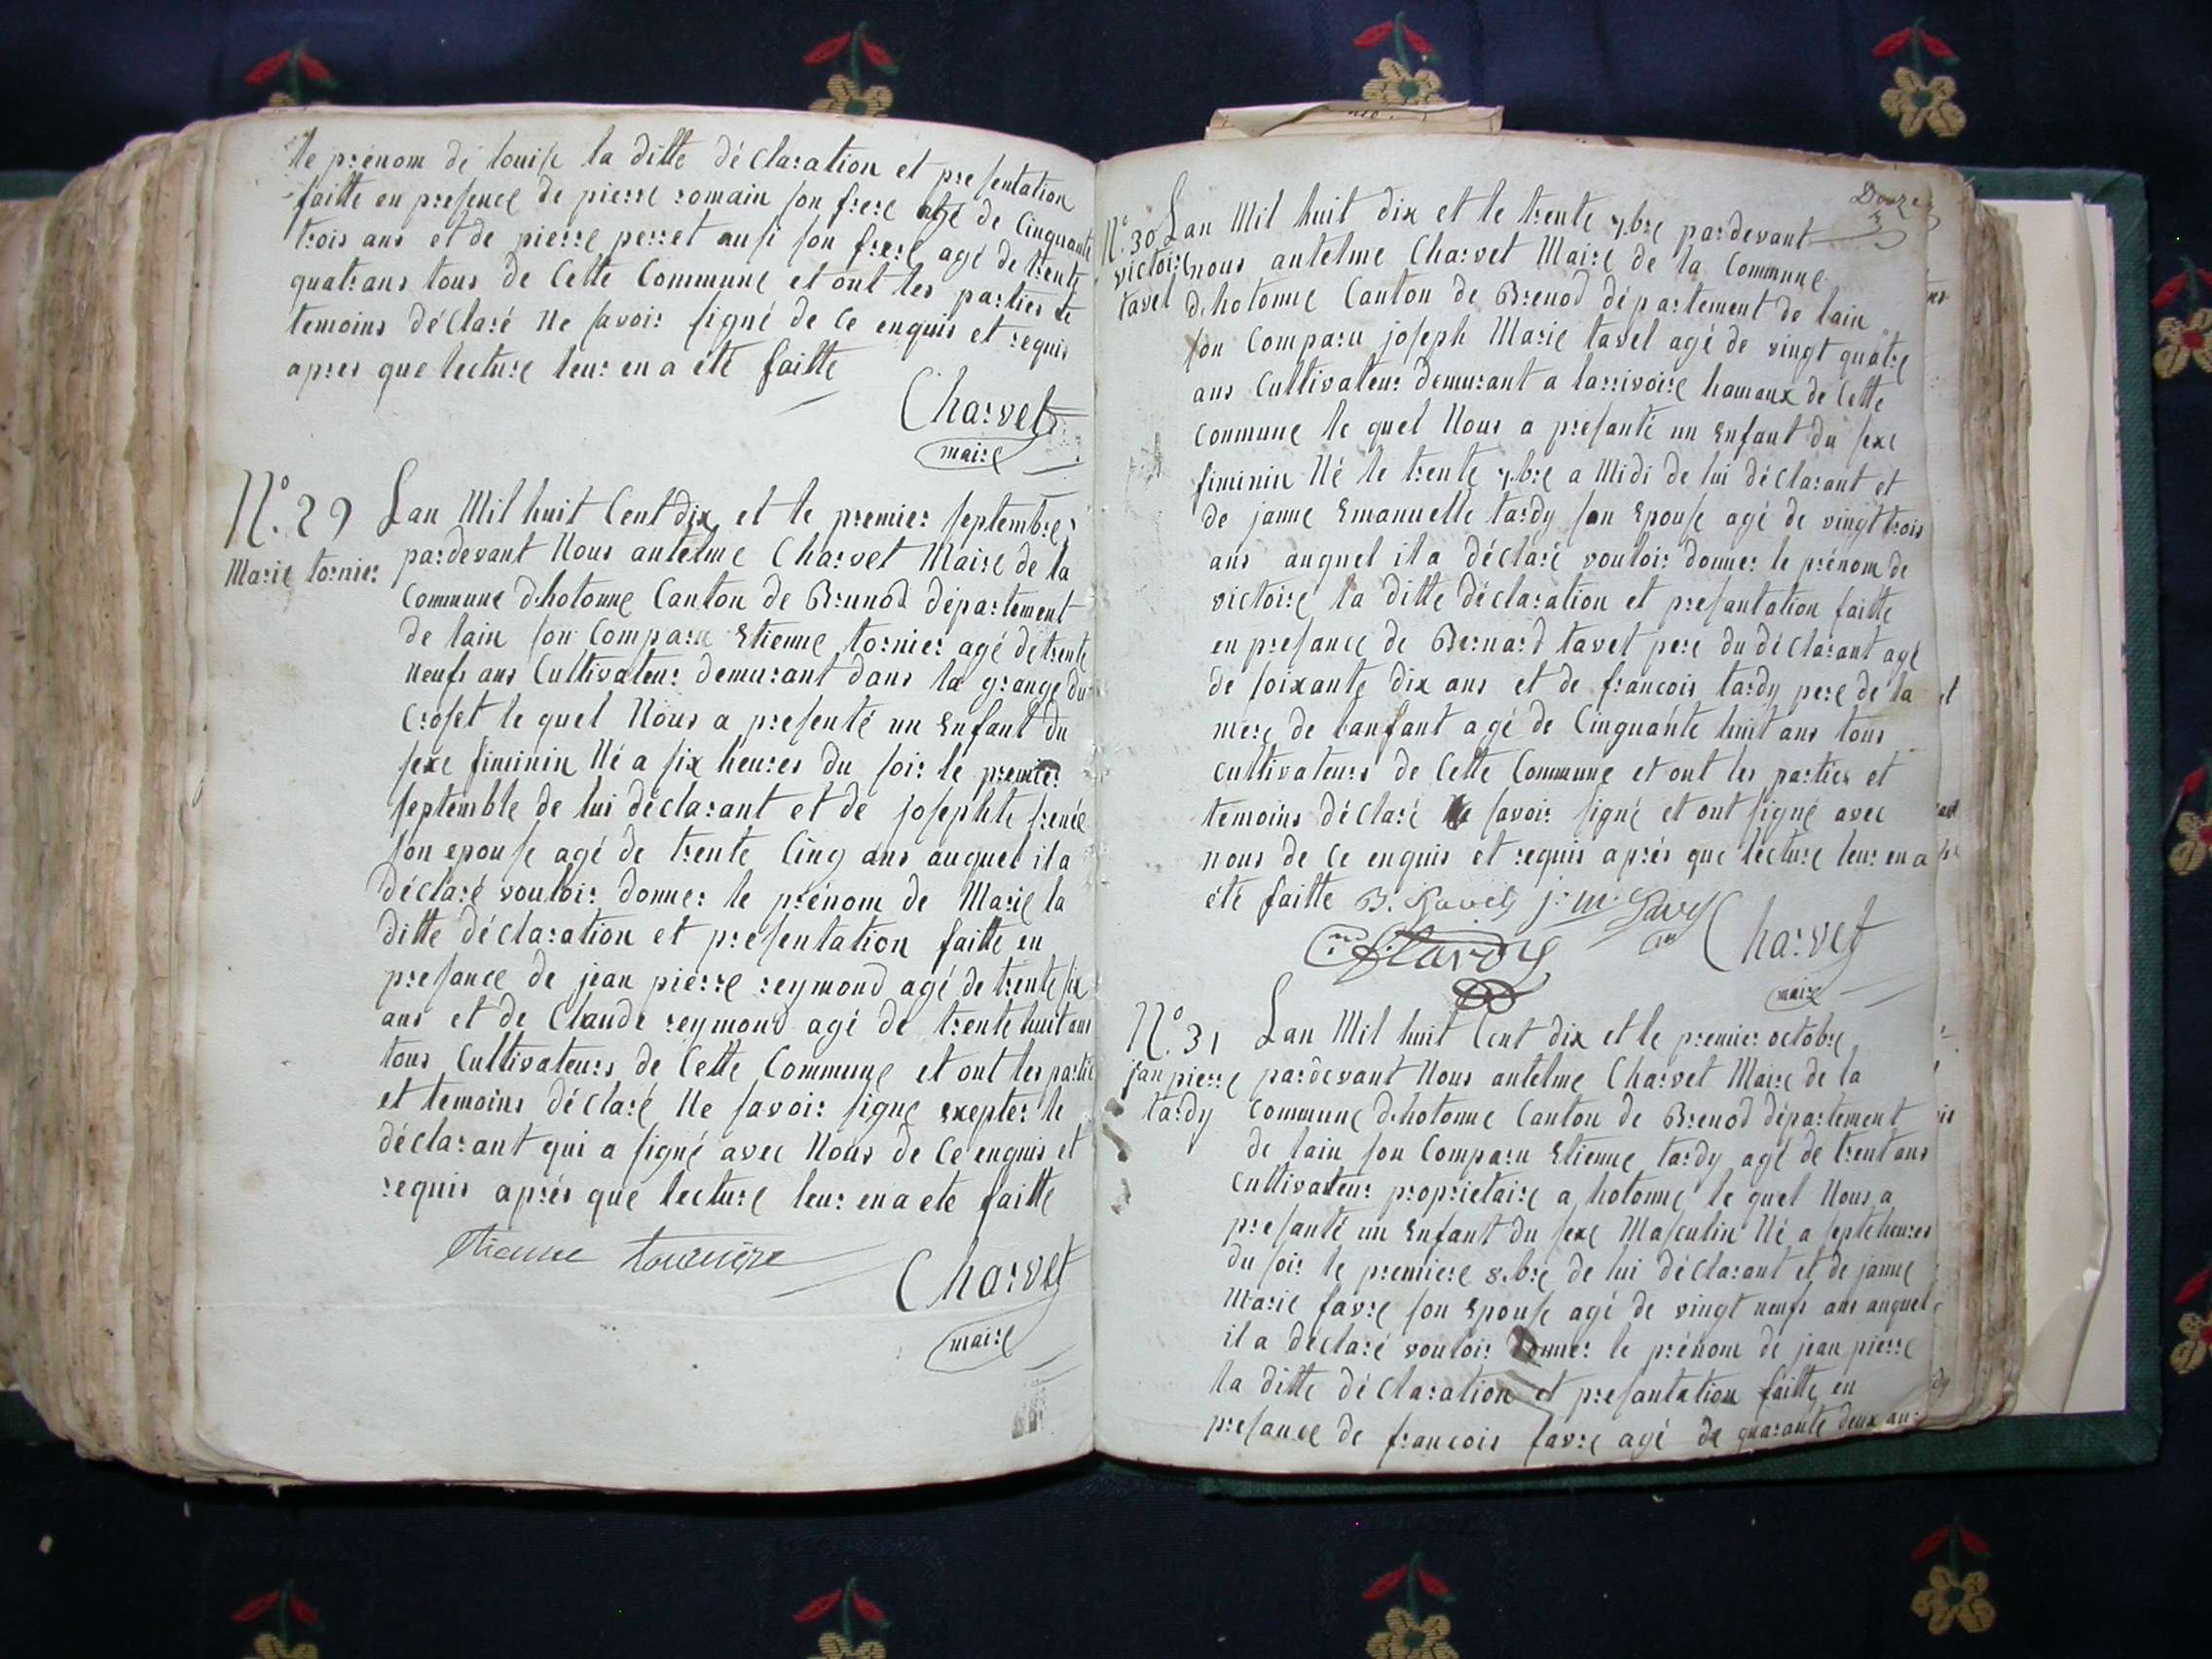 le prénom de louise la ditte déclaration et presentation
faitte en presence de pierre romain son frere agé de Cinquante
trois ans et de pierre perret ausi son frere agé de trente
quatrans tous de Cette Commune et ont les parties et
temoins déclaré Ne savoir signé de Ce enquis et requis
apres que lecture leur en a été faitte
Charvet
maire
N.º 29
Marie tornier
Lan Mil huit Cent dix et le premier septembre
pardevant Nous antelme Charvet Maire de la
Commune d.hotonne Canton de Brunod département
de lain son Comparu Etienne tornier agé de trente
Neufs ans Cultivateur demurant dans la grange du
Croset le quel Nous a presenté un Enfant du
sexe fiminin Né a six heures du soir le premier
septemble de lui déclarant et de josephte frenée
son epouse agé de trente Cinq ans auquel il a
déclaré vouloir donner le prénom de Marie la
ditte déclaration et presentation faitte en
presance de jean pierre reymond agé de trente six
ans et de Claude reymond agé de trente huit ans
tous Cultivateurs de Cette Commune et ont les partie
et temoins déclaré Ne savoir signe exepter le
déclarant qui a signé avec Nous de Ce enquis et
requis aprés que lecture leur en a ete faitte
Etienne tournière
Charvet
maire
Douze
N.º 30
victoire
tavel
Lan Mil huit dix et le trente 7.bre pardevant
nous antelme Charvet Maire de la Commune
d.hotonne Canton de Brenod département de lain
son Comparu joseph Marie tavel agé de vingt quatre
ans Cultivateur demurant a larrivoire hamaux de Cette
Commune le quel Nous a presanté un Enfant du sexe
fiminin Né le trente 7.bre a Midi de lui déclarant et
de janne Emanuelle tardy son Epouse agé de vingt trois
ans auquel il a déclaré vouloir donner le prénom de
victoire la ditte déclaration et presantation faitte
en presance de Bernard tavel pere du déclarant agé
de soixante dix ans et de francois tardy pere de la
mere de lanfant agé de Cinquante huit ans tous
Cultivateurs de Cette Commune et ont les parties et
temoins déclaré savoir signé et ont signé avec
nous de Ce enquis et requis aprés que lecture leur en a
été faitte B. Tavel j. m. Tavel
tardy Charvet
maire
N.º 31
jan pierre
tardy
Lan Mil huit Cent dix et le premier octobre
pardevant Nous antelme Charvet Maire de la
Commune d.hotonne Canton de Brenod département
de lain son Comparu Etienne tardy agé de trent ans
Cultivateur proprietaire a hotonne le quel Nous a
presanté un Enfant du sexe Masculin Né a septe heures
du soir le premiere 8.bre de lui déclarant et de janne
Marie favre son Epouse agé de vingt neufs ans auquel
il a déclaré vouloir donner le prénom de jean pierre
la ditte déclaration et presantation faitte en
presance de francois favre agé de quarante deux ans